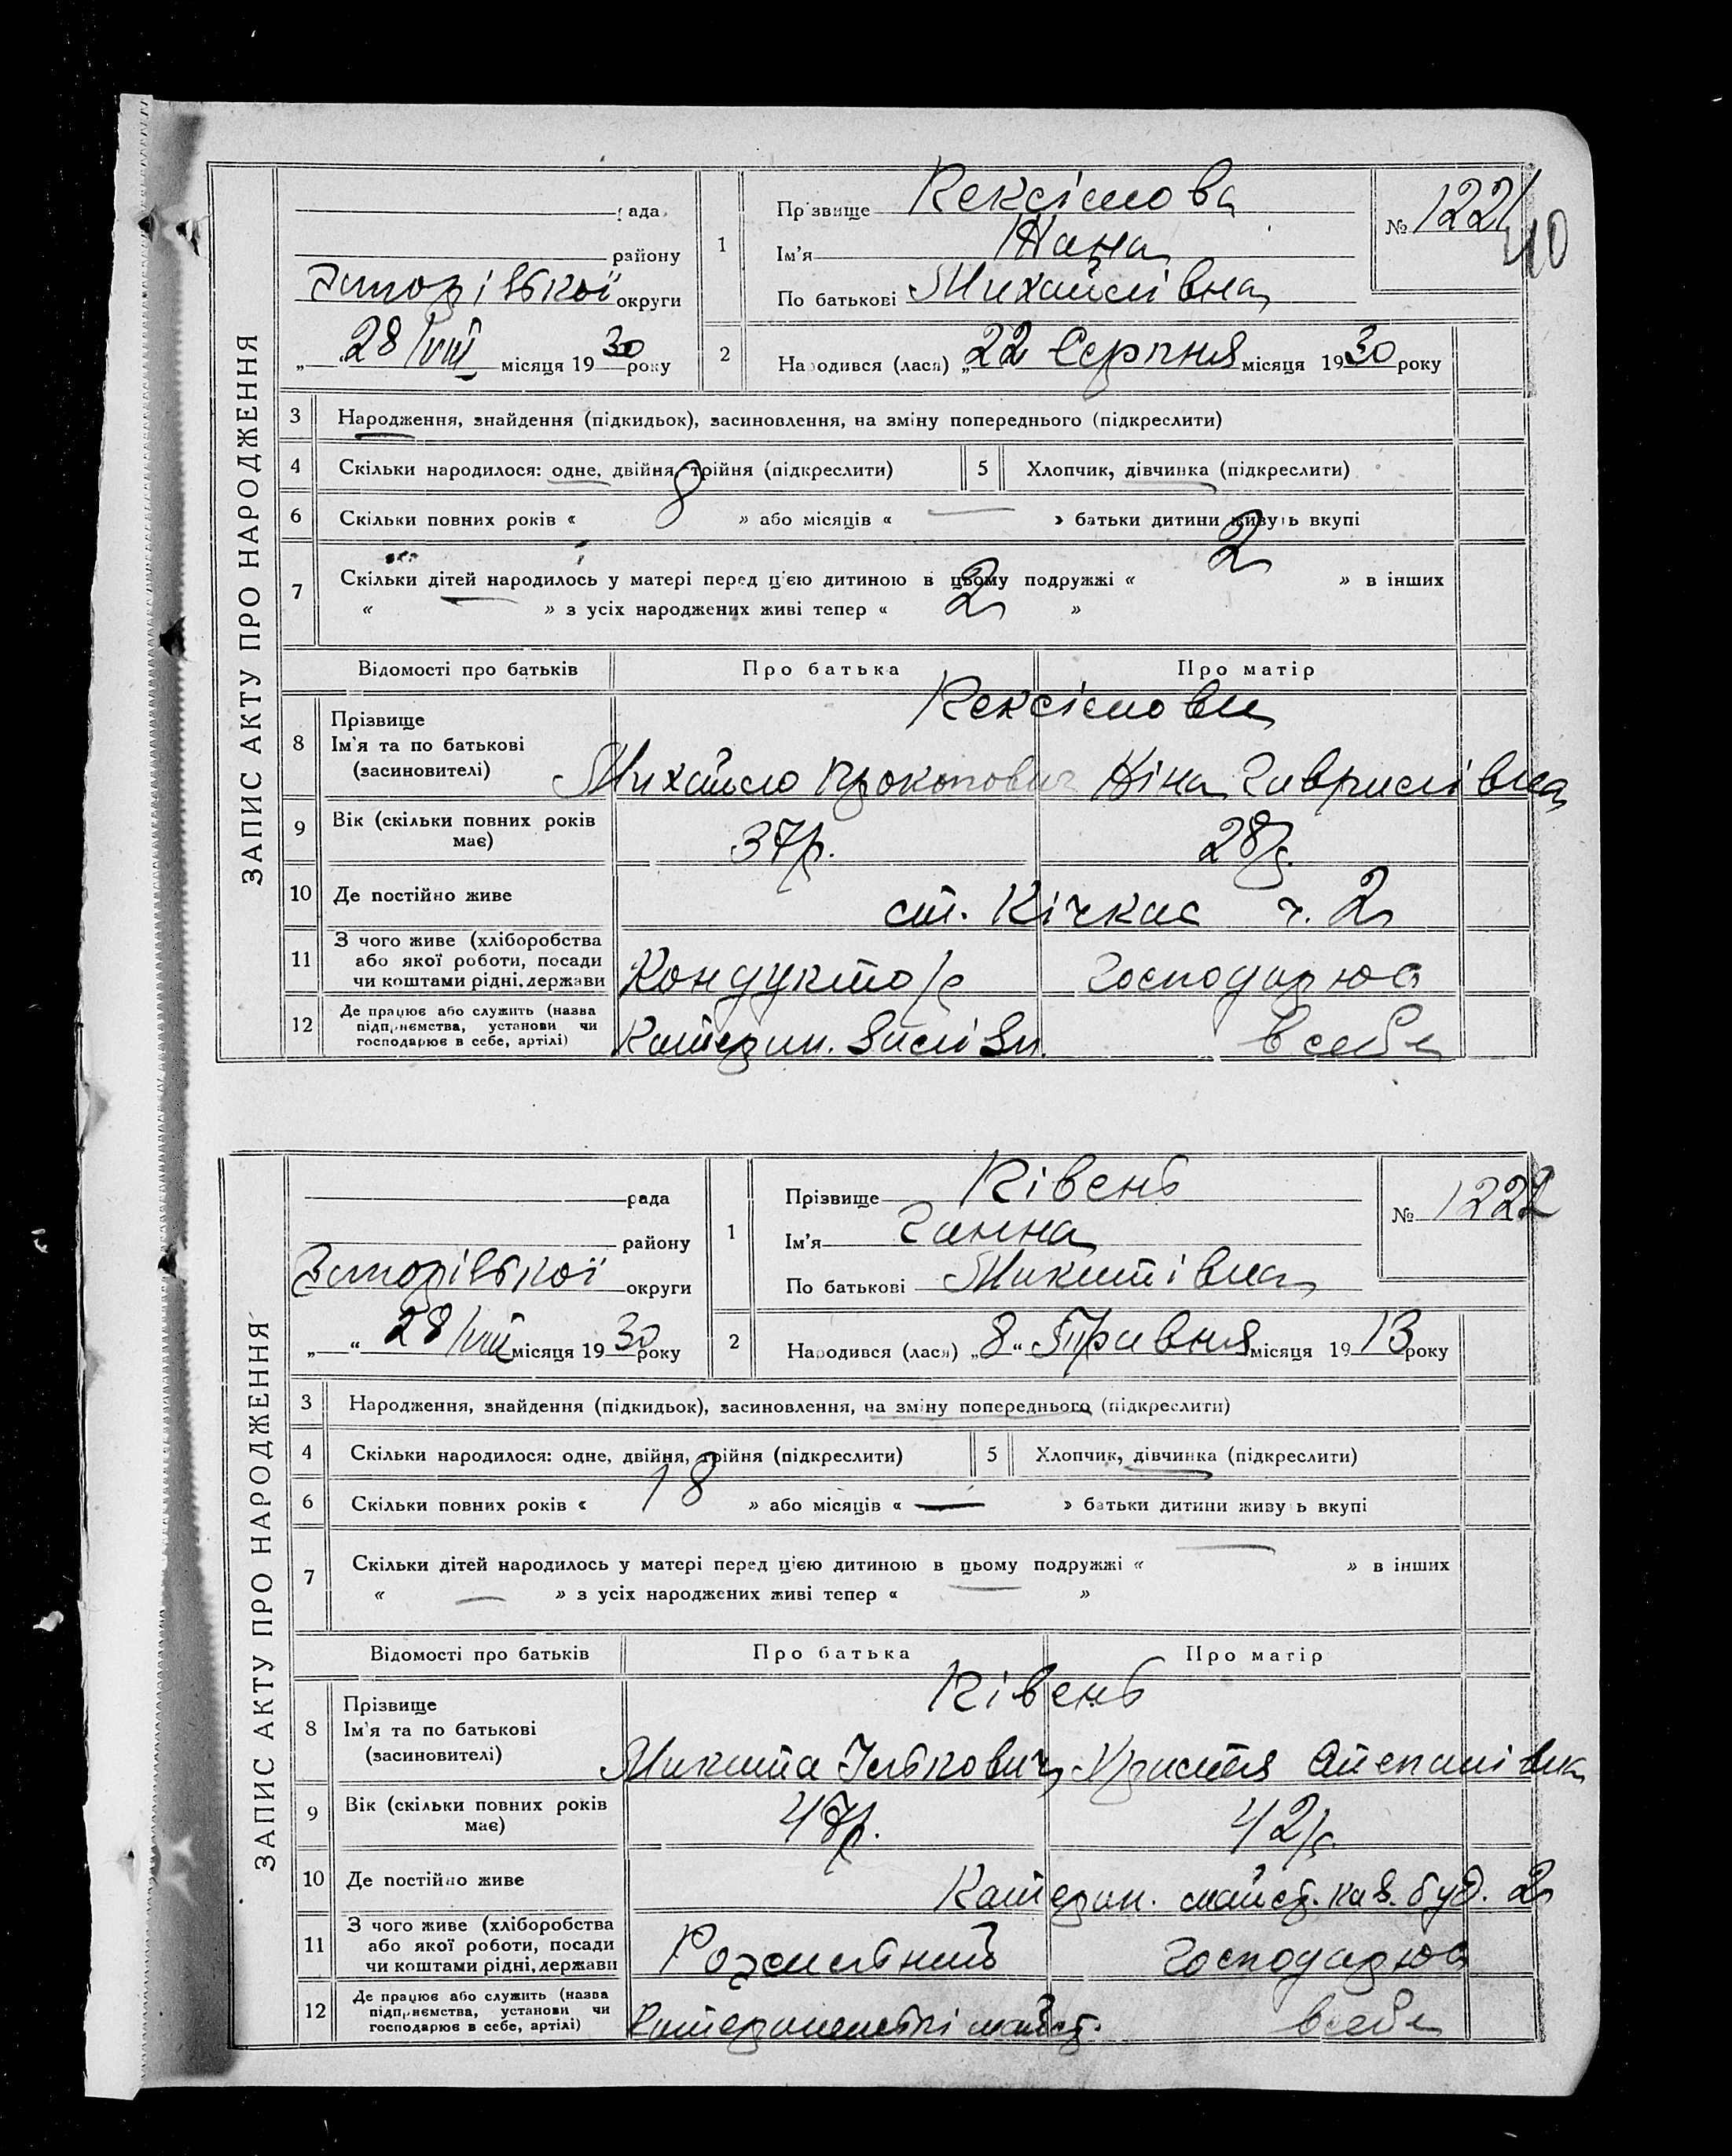 ЗАПИС АКТУ ПРО НАРОДЖЕННЯ
рада
району
Запорізької округи
28/VIII місяця 1930 року
1
Прізвище Кексімова
Ім'я
По батькові Михайлівна
№ 1221
40
2
Народився (лася) „22 Серпня місяця 1930 року
3 Народження, знайдення (підкидьок), засиновлення, на зміну попереднього (підкреслити)
4 Скільки народилося: одне, двійня, трійня (підкреслити)
5 Хлопчик, дівчинка (підкреслити)
6 Скільки повних років « 8 » або місяців « — » батьки дитини живуть вкупі
7 Скільки дітей народилось у матері перед цією дитиною в цьому подружжі « 2 » в інших
« — » з усіх народжених живі тепер « 2 »
Відомості про батьків Про батька Про матір
8 Прізвище
Ім'я та по батькові
(засиновителі)
Кексімови
Михайло Прокопович Ніна Гаврилівна
9 Вік (скільки повних років має) 37р. 28р.
10 Де постійно живе ст. Кічкас ч. 2
11 З чого живе (хліборобства або якої роботи, посади чи коштами рідні, держави Кондуктор Господарює
12 Де працює або служить (назва підприємства, установи чи господарює в себе, артілі) Катерин. в себе
ЗАПИС АКТУ ПРО НАРОДЖЕННЯ
рада
району
Запорізької округи
„ “ 28/VIII місяця 1930 року
1
Прізвище Півень
Ім'я Ганна
По батькові Микитівна
№ 1222
2
Народився (лася) „8“ Травня місяця 1913 року
3 Народження, знайдення (підкидьок), засиновлення, на зміну попереднього (підкреслити)
4 Скільки народилося: одне, двійня, трійня (підкреслити)
5 Хлопчик, дівчинка (підкреслити)
6 Скільки повних років « 18 » або місяців « — » батьки дитини живуть вкупі
7 Скільки дітей народилось у матері перед цією дитиною в цьому подружжі « — » в інших
« — » з усіх народжених живі тепер « — »
Відомості про батьків Про батька Про матір
8 Прізвище
Ім'я та по батькові
(засиновителі)
Півень
Микита Ількович Христя Степанівна
9 Вік (скільки повних років має) 47р. 42р.
10 Де постійно живе Катерин. майстр. каз. буд. 2
11 З чого живе (хліборобства або якої роботи, посади чи коштами рідні, держави Господарює
12 Де працює або служить (назва підприємства, установи чи господарює в себе, артілі) майст. в себе